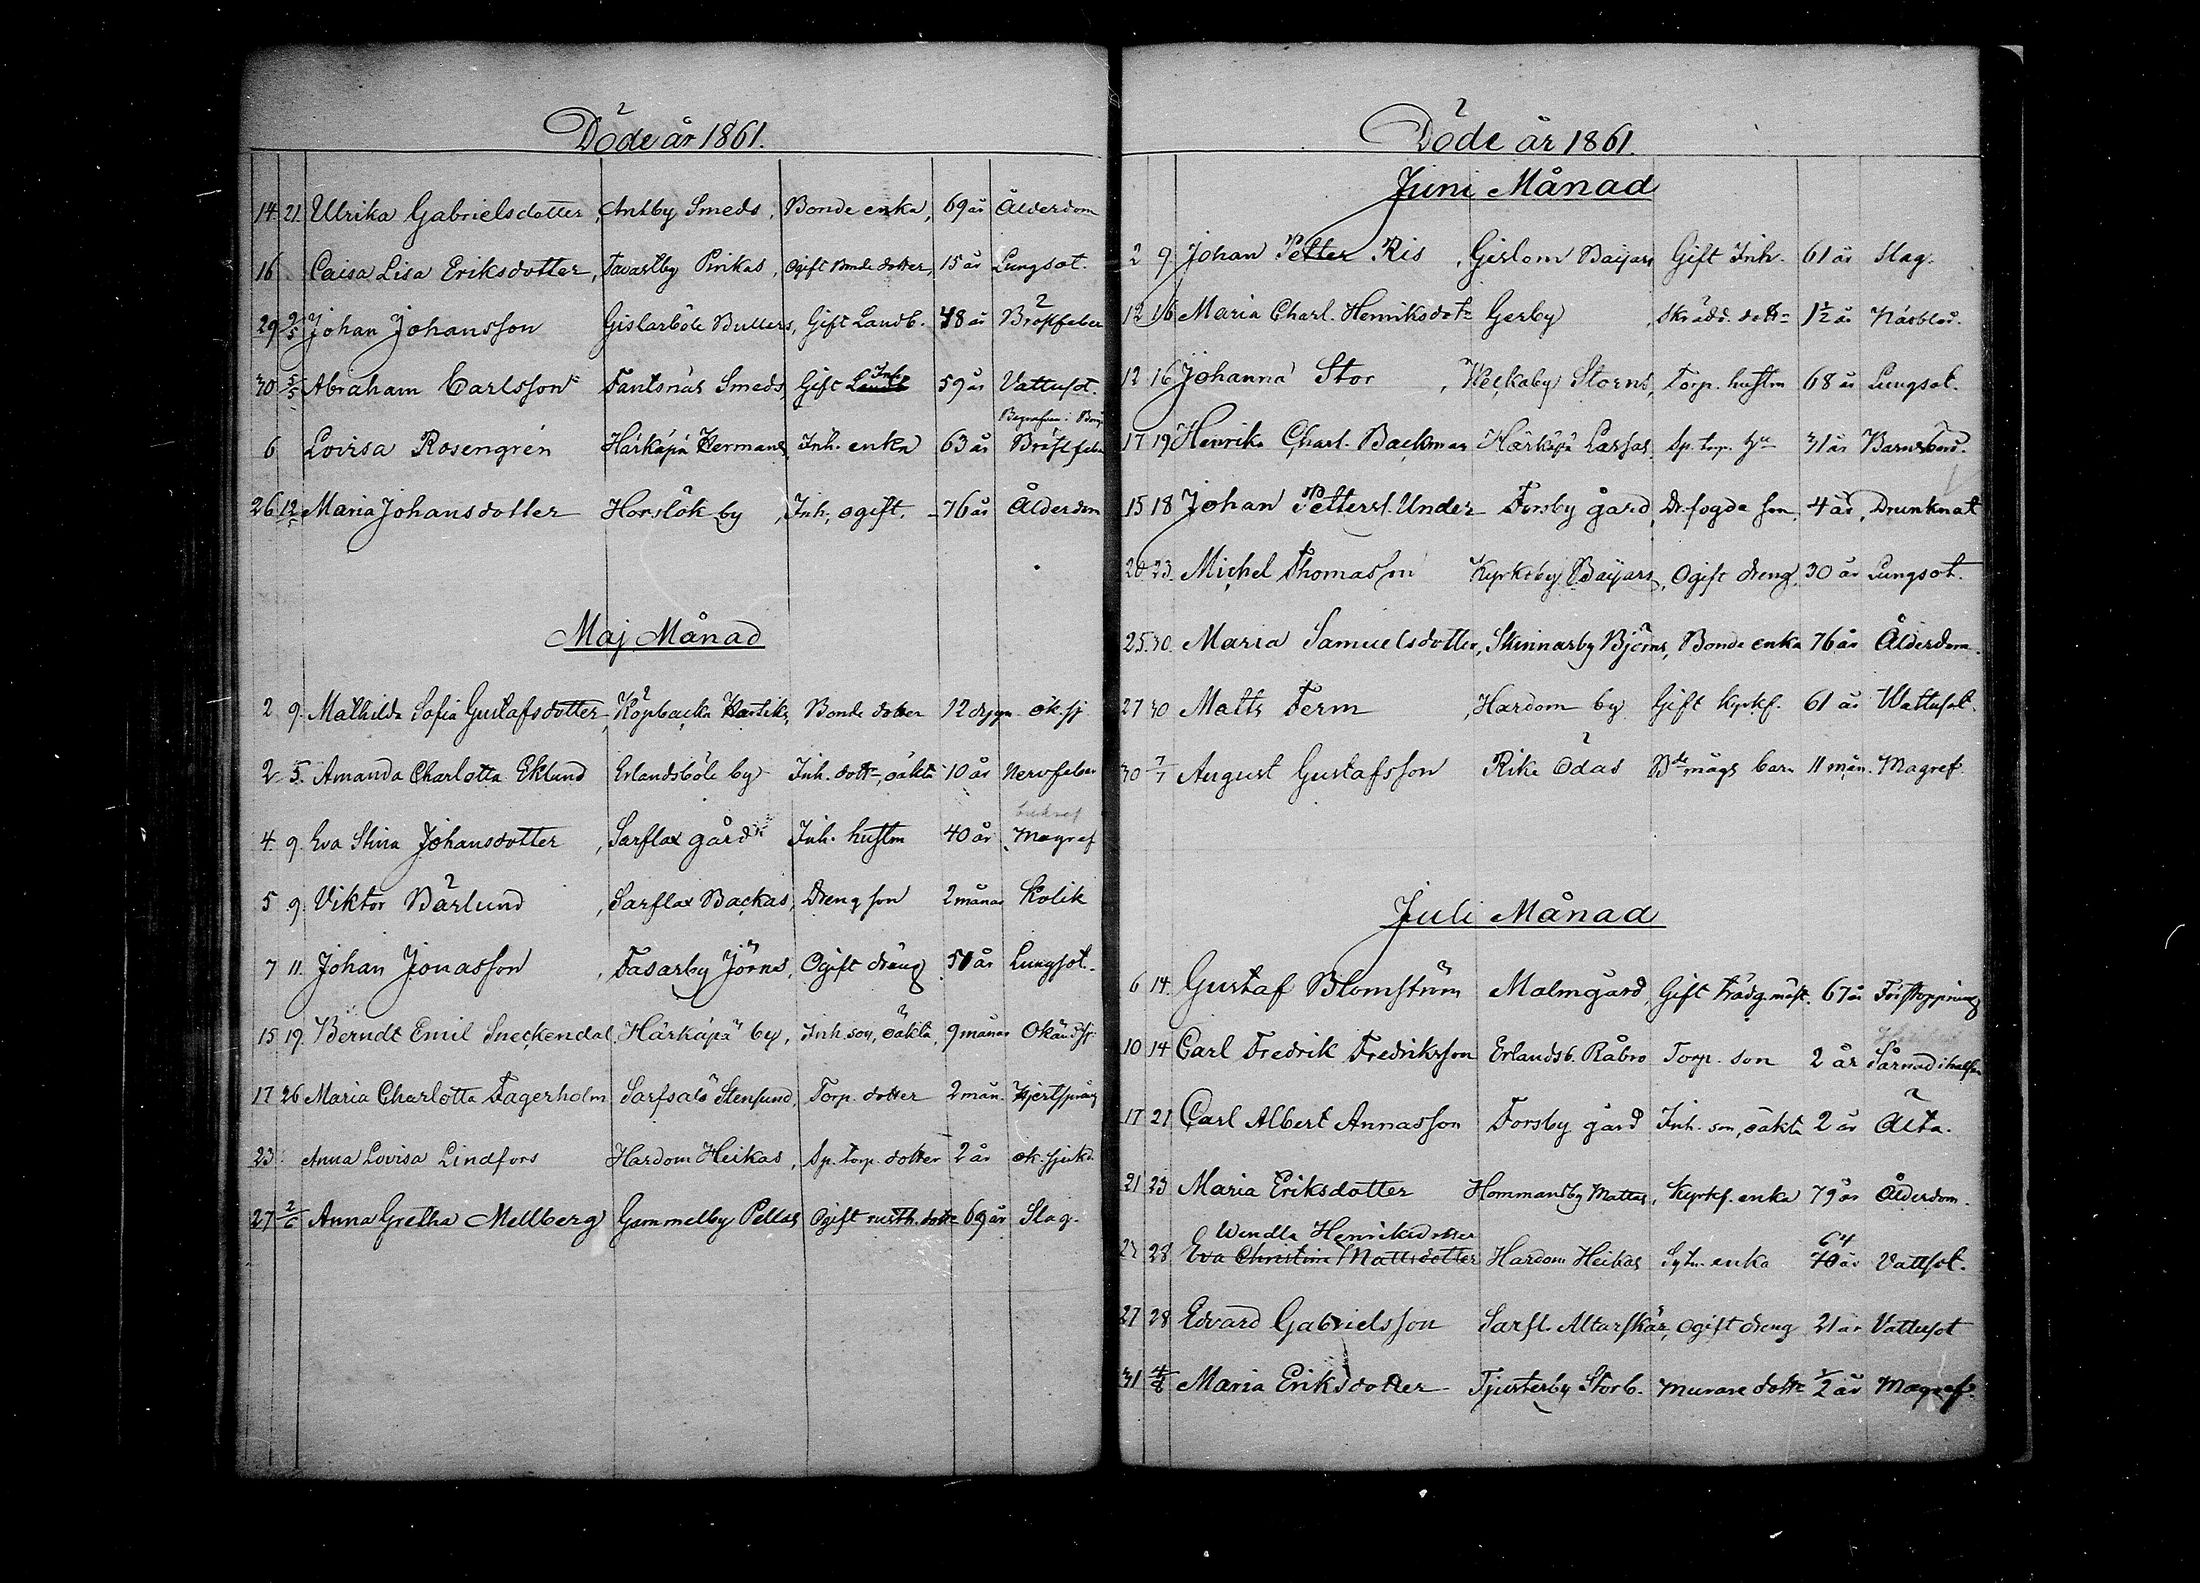 Döde år 1861.
14 21 Ulrika Gabrielsdotter, Antby Smeds, Bonde enka, 69 år Ålderdom
16 Caisa Lisa Eriksdotter, Tavastby Pirikas, Ogift Bonde dotter, 15 år Lungsot.
29 2/5 Johan Johansson Gislarböle Bullers, Gift Landb. 48 år Bröstfeber
30 5/5 Abraham Carlsson Fantsnäs Smeds, Gift Inh. 59 år Vattusot.
Begrafven i
6 Lovisa Rosengrén Härkäpä Hermans, Inh. enka 63 år Bröstfeber
26 12/5 Maria Johansdotter Horslök by, Inh. ogift. 76 år Ålderdom
Maj Månad
2 9. Mathilda Sofia Gustafsdotter, Köpbacka Bonde dotter 12 dygn ok. sj
2 5. Amanda Charlotta Eklund Erlandsböle by Inh. dottr, oäkta 10 år Nervfeber
4. 9. Eva Stina Johansdotter, Sarflax gård Inh. hustru 40 år Magref
5 9. Viktor Bärlund, Sarflax Backas, Dreng son 2 månar Kolik
7 11. Johan Jonasson, Fasarby Jörns, Ogift dräng 51 år Lungsot.
15 19. Berndt Emil Sneckendal, Härkäpä by, Inh. son, oäkta 9 månar Okänd sj.
17 26 Maria Charlotta Fagerholm Sarfsalö Stensund, Torp. dotter 2 mån. Hjertsprång
23 Anna Lovisa Lindfors Hardom Heikas, Sp. torp. dotter 2 år ok. sjukd.
27 2/6 Anna Gretha Mellberg Gammelby Pellas Ogift rusth. dottr 69 år Slag.
Döde år 1861.
Juni Månad
2 9. Johan Petter Ris, Gislom Baijars Gift Inh. 61 år Slag.
12 16 Maria Charl. Henriksdotr Gerby, Skrädd. dottr 1½ år Näsblod.
12 16 Johanna Stor, Weckaby Storns, Torp. hustru 68 år Lungsot.
17 19 Henrika Charl. Backman Härkäpä Lassas, Sp. torp. hu 31 år Barnsbörd.
15 18 Johan Petterss. Under Forsby gård, Dr. fogde son, 4 år, Drunknat
20 23. Michel Thomasson Kyrkoby Baijars, Ogift dreng, 30 år Lungsot.
25. 30. Maria Samuelsdotter, Skinnarby Björns, Bonde enka 76 år Ålderdom.
27 30 Matts Ferm, Hardom by Gift kyrkf. 61 år Wattusot.
30 7/7 August Gustafsson Rike Ödas Bde mågs barn 11 mån. Magref
Juli Månad
6 14. Gustaf Blomström Malmgård, Gift trädg. mäst. 67 år Förstoppning
10 14 Carl Fredrik Fredriksson Erlandsb. Råbro Torp. son 2 år Sårnad i halsen
17 21 Carl Albert Annasson Forsby gård Inh. son, oäkta 2 år Älta.
21 23 Maria Eriksdotter Hommansby Mattas, Kyrkf. enka 79 år Ålderdom.
Wendla Henriksdotter 64
28 Eva Christina Mattsdotter Hardom Heikas Sytn. enka 70 år Vattsot.
27 28 Edvard Gabrielsson Sarfl. Altarskär, ogift dreng 21 år Vattusot
31 4/8 Maria Eriksdotter Tjusterby Storb. Murare dottr ½ år Magref.